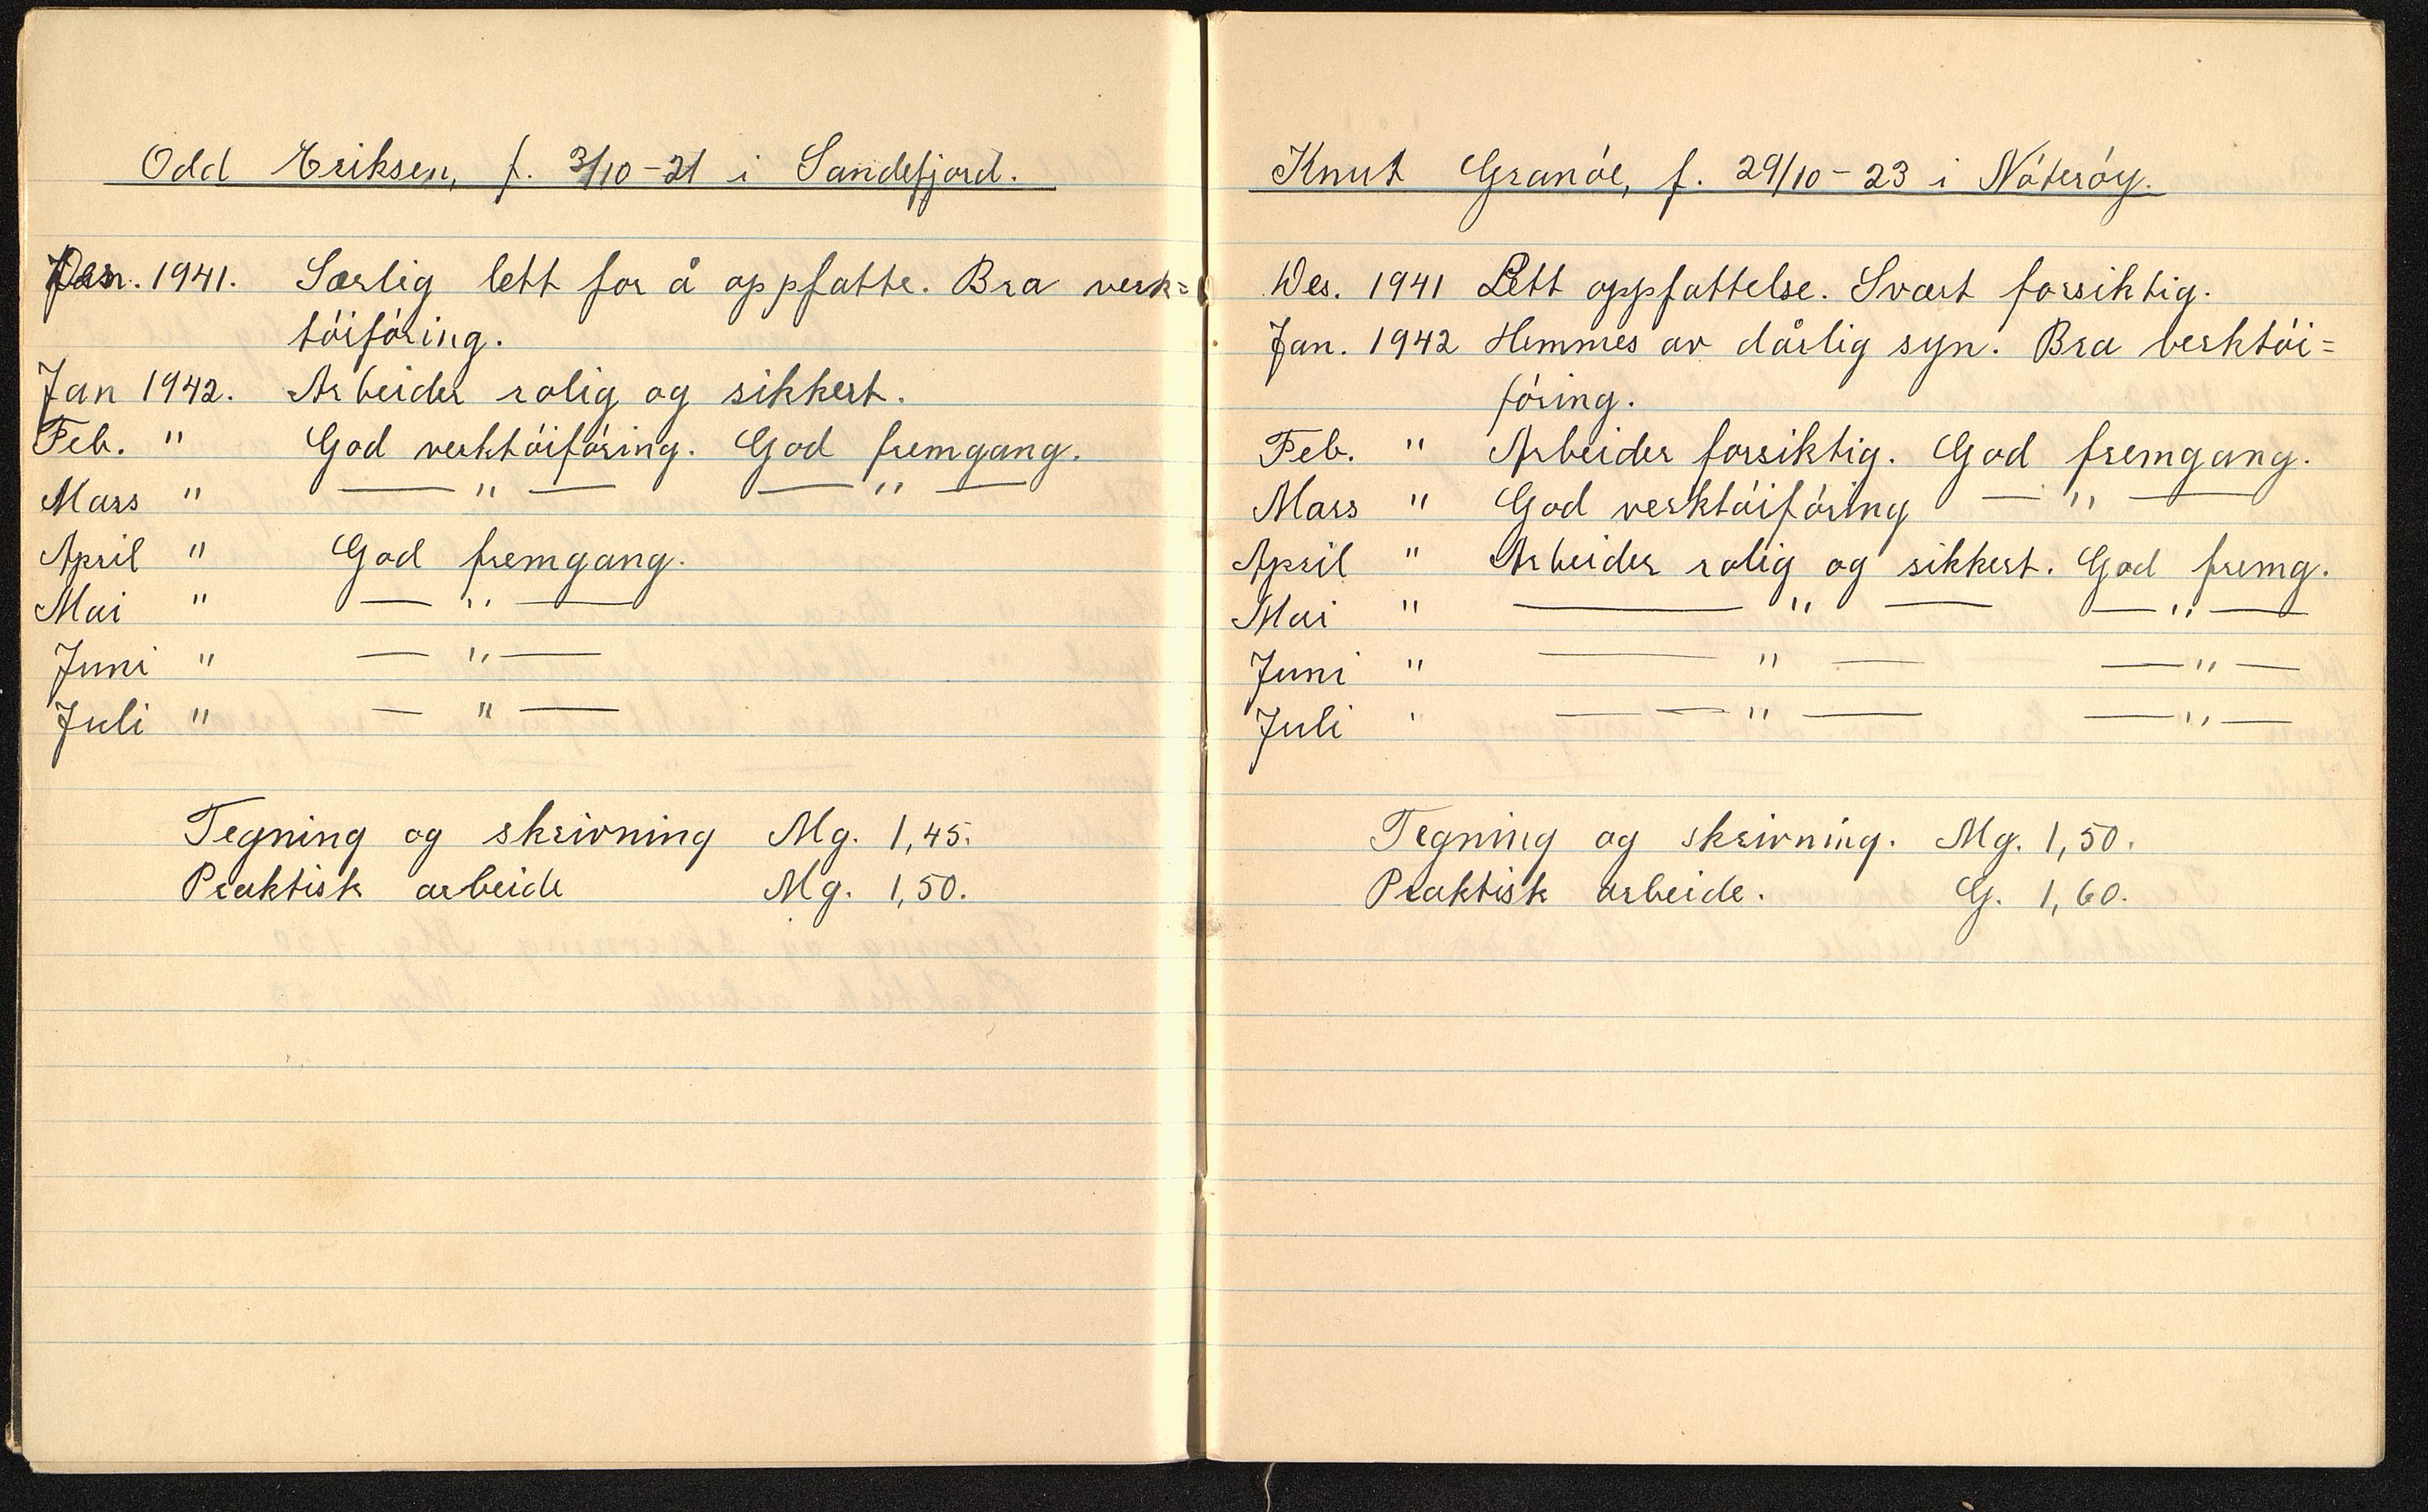 Odd Eriksen, f. 3/10-21 i Sandefjord.
Des. 1941. Særlig lett for å oppfatte. Bra verk=
tóifóring.
Jan 1942. Arbeider rolig og sikkert.
Feb. " God verktóifóring. God fremgang.
Mars " — " — — " —
April " God fremgang.
Mai " — " —
Juni " — " —
Juli " — " —
Tegning og skrivning Mg. 1,45.
Praktisk arbeide Mg. 1,50.
Knut Granóe, f. 29/10-23 i Nóteróy.
Des. 1941 Lett oppfattelse. Svært forsiktig.
Jan. 1942 Hemmes av dårlig syn. Bra verktói=
fóring.
Feb. " Arbeider forsiktig. God fremgang.
Mars " God verktóifóring — " —
April " Arbeider rolig og sikkert. God fremg.
Mai " — " — — " —
Juni " — " — — " —
Juli " — — " — — " —
Tegning og skrivning. Mg. 1,50.
Praktisk arbeide. G. 1,60.